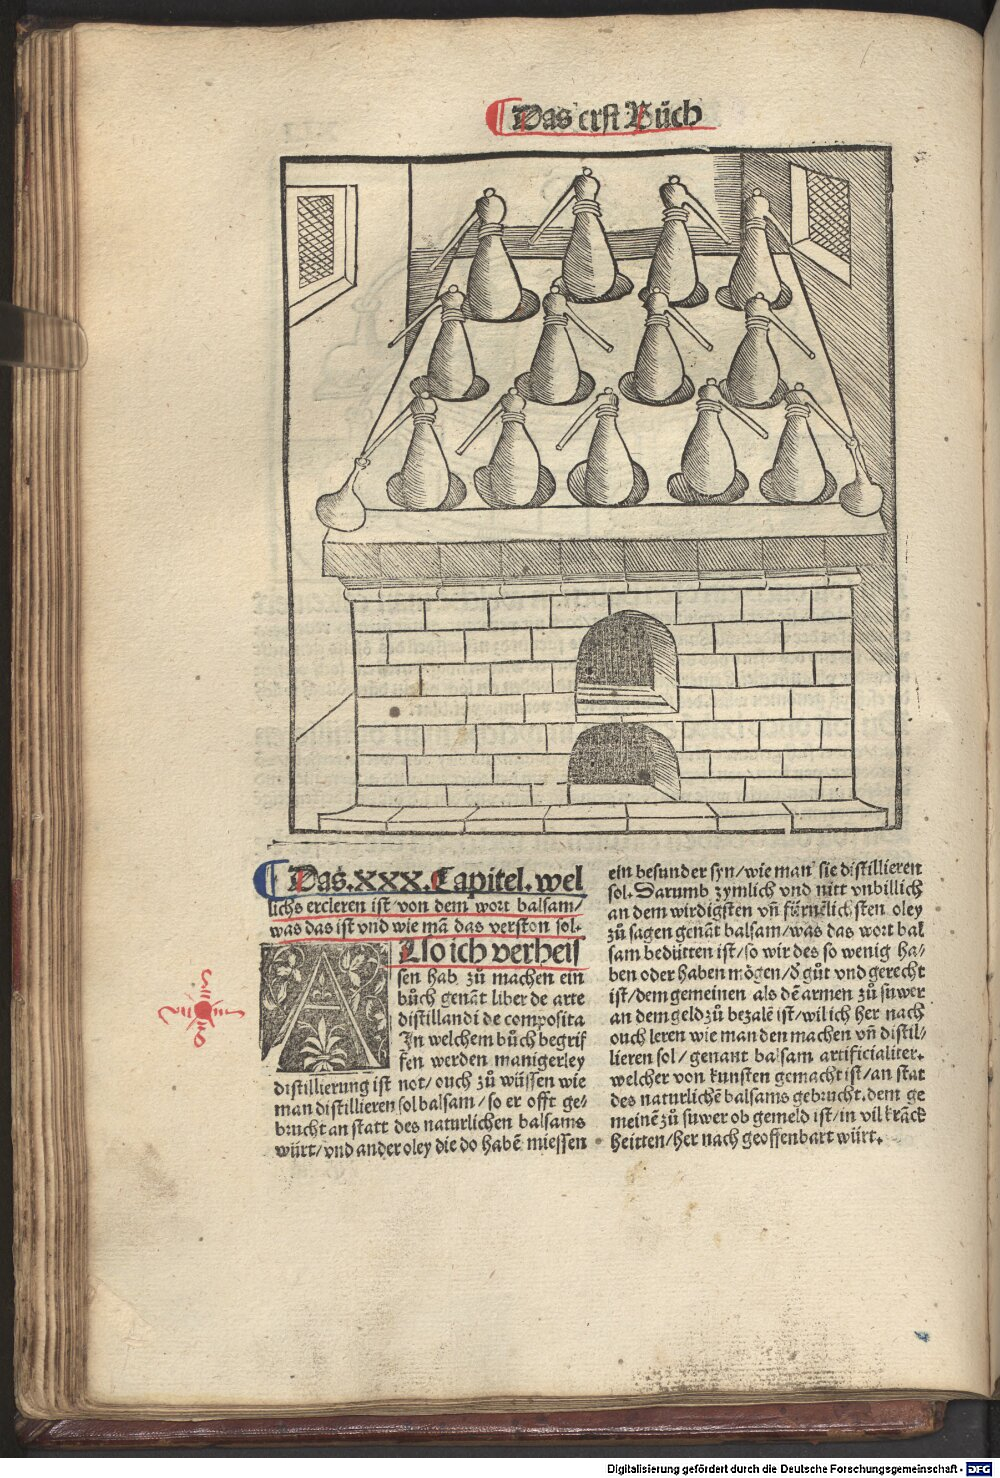 Das erst Bůch
Das.XXX.Capitel.wel
lichs ercleren ist von dem wort balsam/
was das ist vnd wie mā das verston sol.
Also ich verheis
sen hab zů machen ein
bůch genāt liber de arte
distillandi de composita
In welchem bůch begrif
fen werden manigerley
distillierung ist not/ouch zů wüssen wie
man distillieren sol balsam/so er offt ge/
brucht an statt des naturlichen balsams
würt/vnd ander oley die do habē miessen
ein besunder syn/wie man sie distillieren
sol. Darumb zymlich vnd nitt vnbillich
an dem wirdigsten vn̄ fürnēlichsten oley
zů sagen genāt balsam/was das wort bal
sam bedütten ist/so wir des so wenig ha/
ben oder haben mögen/ď gůt vnd gerecht
ist/dem gemeinen als dē armen zů suwer
an dem geld zů bezalē ist/wil ich her nach
ouch leren wie man den machen vn̄ distil/
lieren sol/genant balsam artificialiter.
welcher von kunsten gemacht ist/an stat
des naturlichē balsams gebrucht.dem ge
meinē zů suwer ob gemeld ist/in vil krāck
heitten/her nach geoffenbart würt.
Digitalisierung gefördert durch die Deutsche Forschungsgemeinschaft - DFG